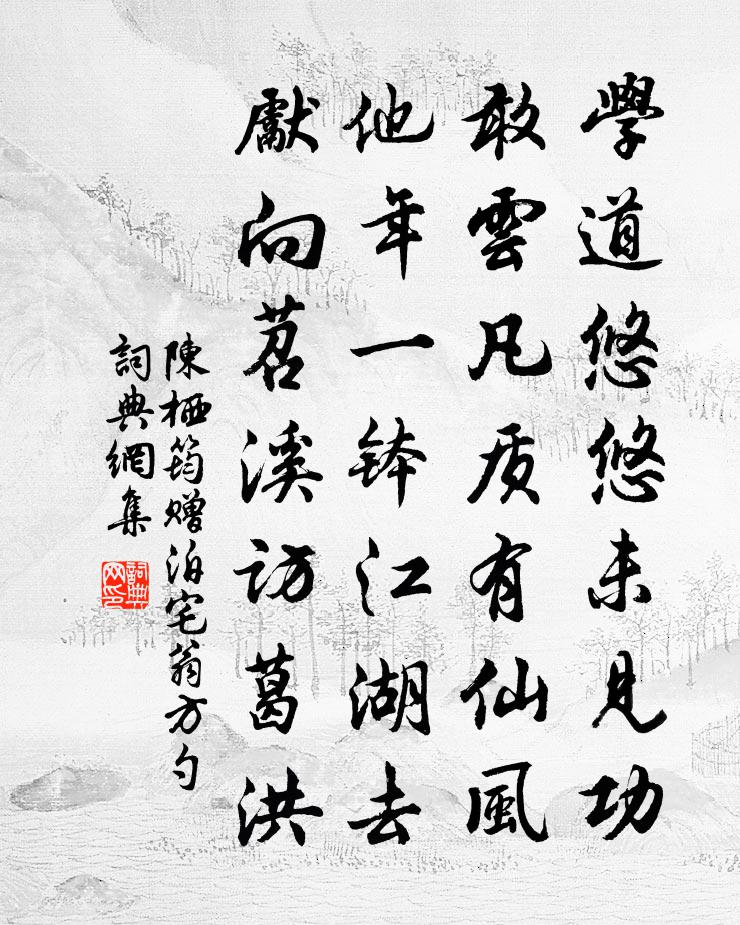 學道悠悠未見功
敢雲凡质有仙風
他年一鉢江湖去
獻向苕溪訪葛洪
陳栖筠贈泊宅翁方勺
詞典網集
詞典网印